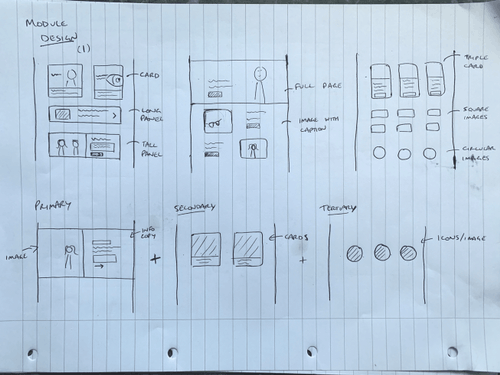 MODULE
DESIGN
(1)
CARD
LONG
PANEL
TALL
PANEL
FULL PAGE
IMAGE WITH
CAPTION
TRIPLE
CARD
SQUARE
IMAGES
CIRCULAR
IMAGES
PRIMARY
IMAGE
INFO
COPY
+
SECONDARY
CARDS
+
TERTIARY
ICONS/IMAGE